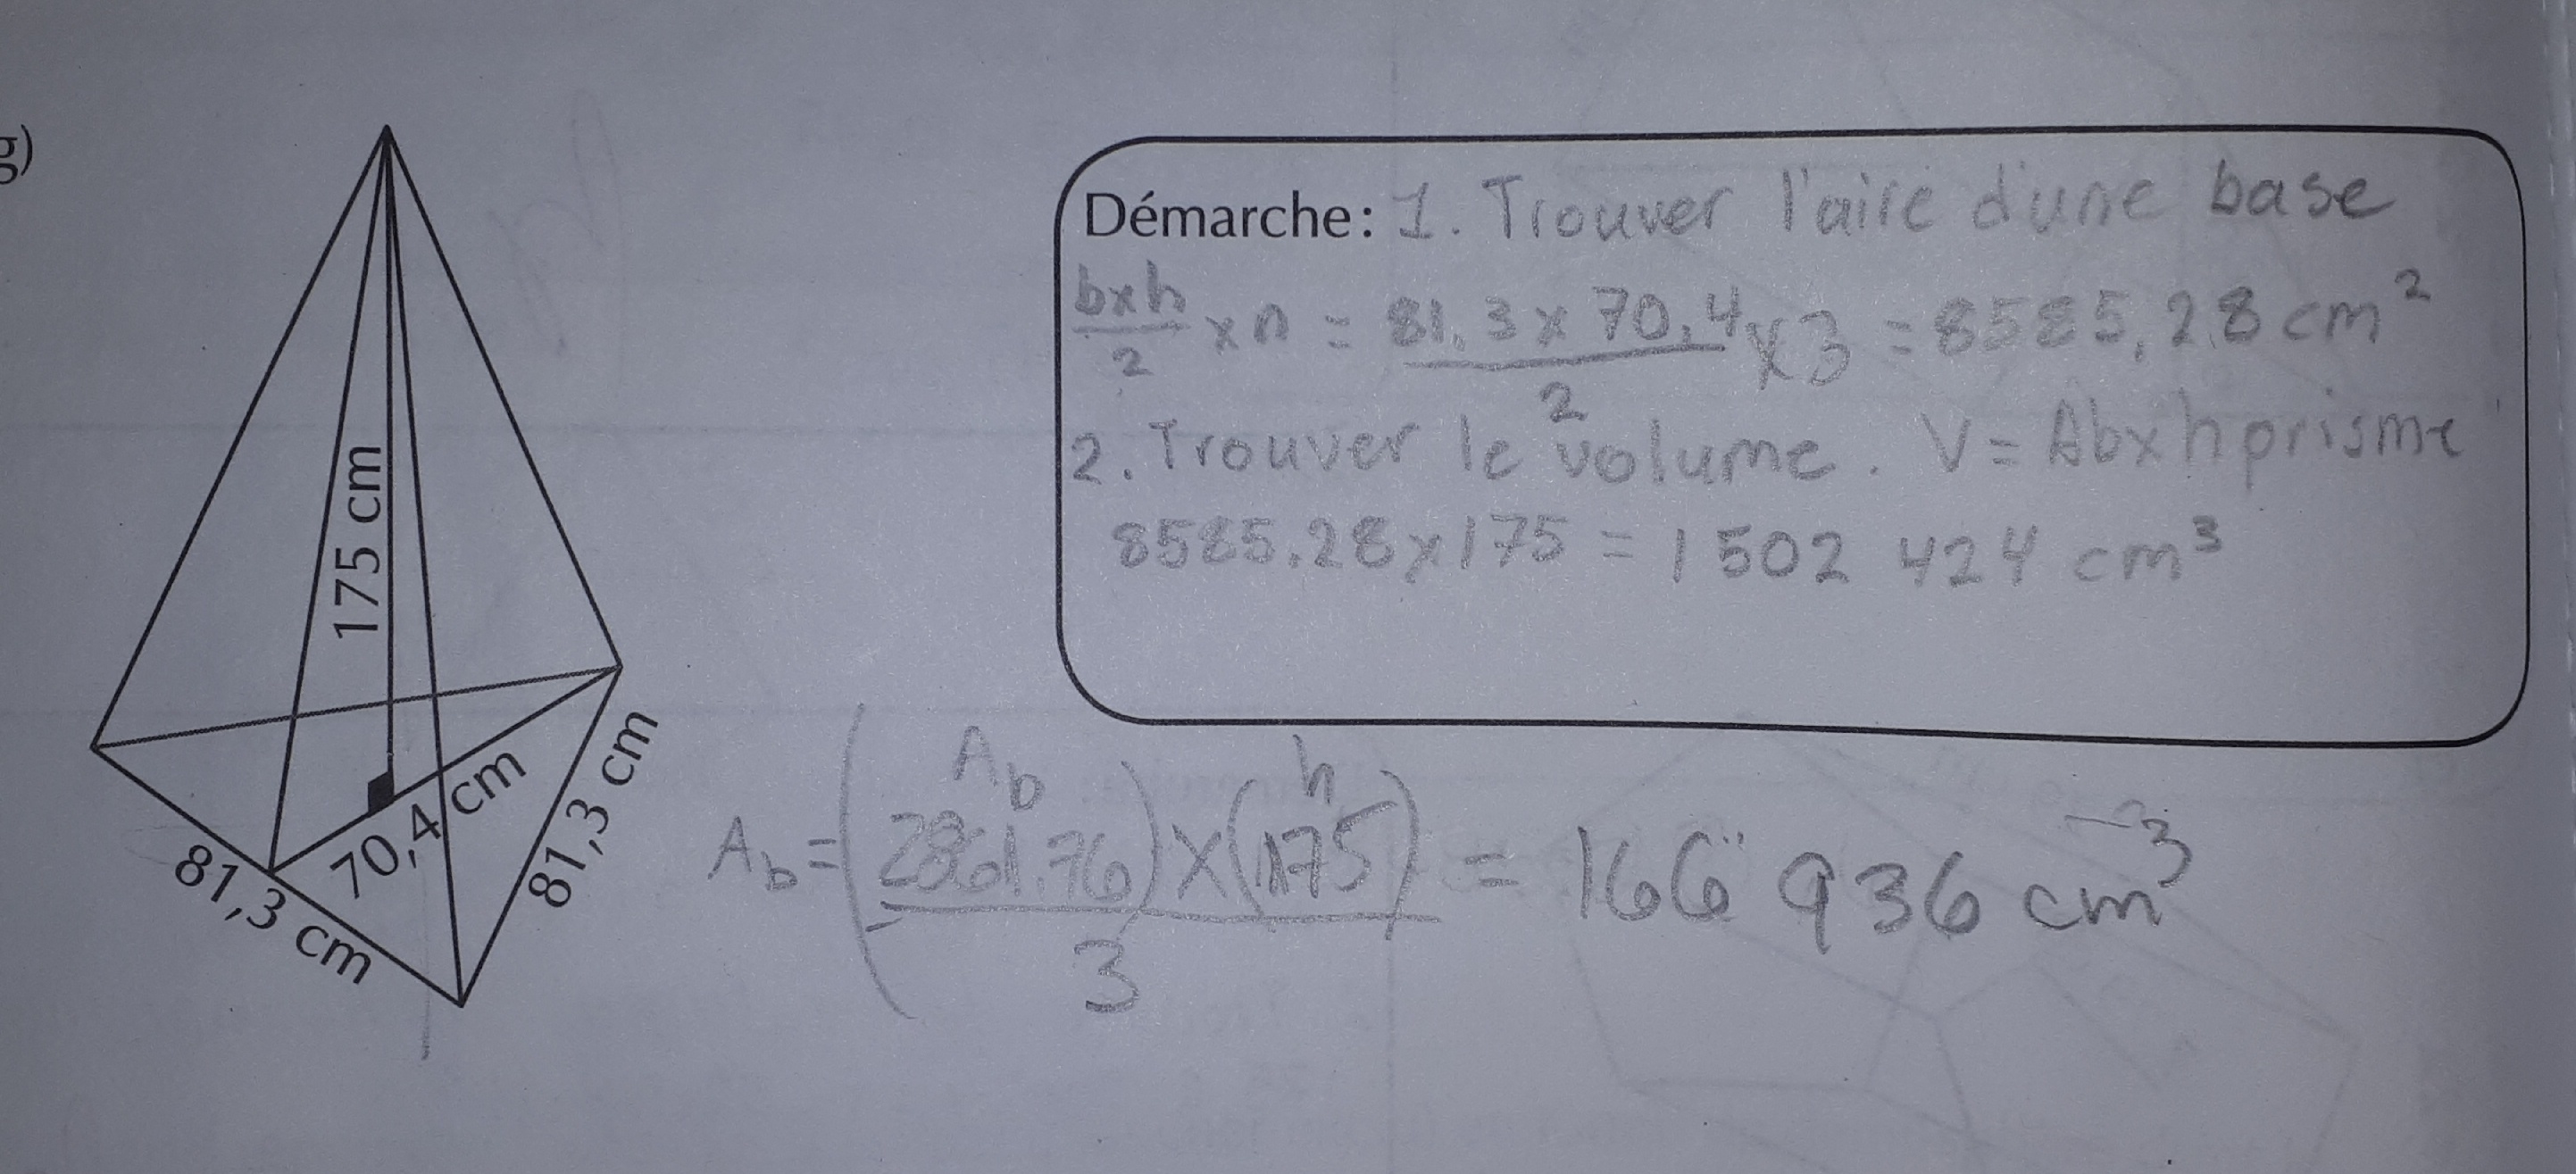 g)
175 cm
70,4 cm
81,3 cm
81,3 cm
Démarche: 1. Trouver l'aire d'une base
bxh/2 x n = 81,3 x 70,4/2 x 3 = 8585,28 cm²
2. Trouver le volume. V = Abxhprisme
8585.28 x 175 = 1 502 424 cm³
Ab h
Ab = ((2861.76) x (175)/3 = 166 936 cm³